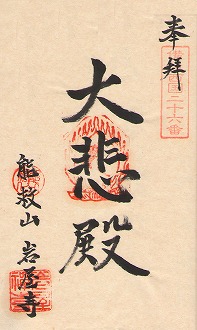 奉拝
二十六番
大悲殿
能救山 岩屋寺